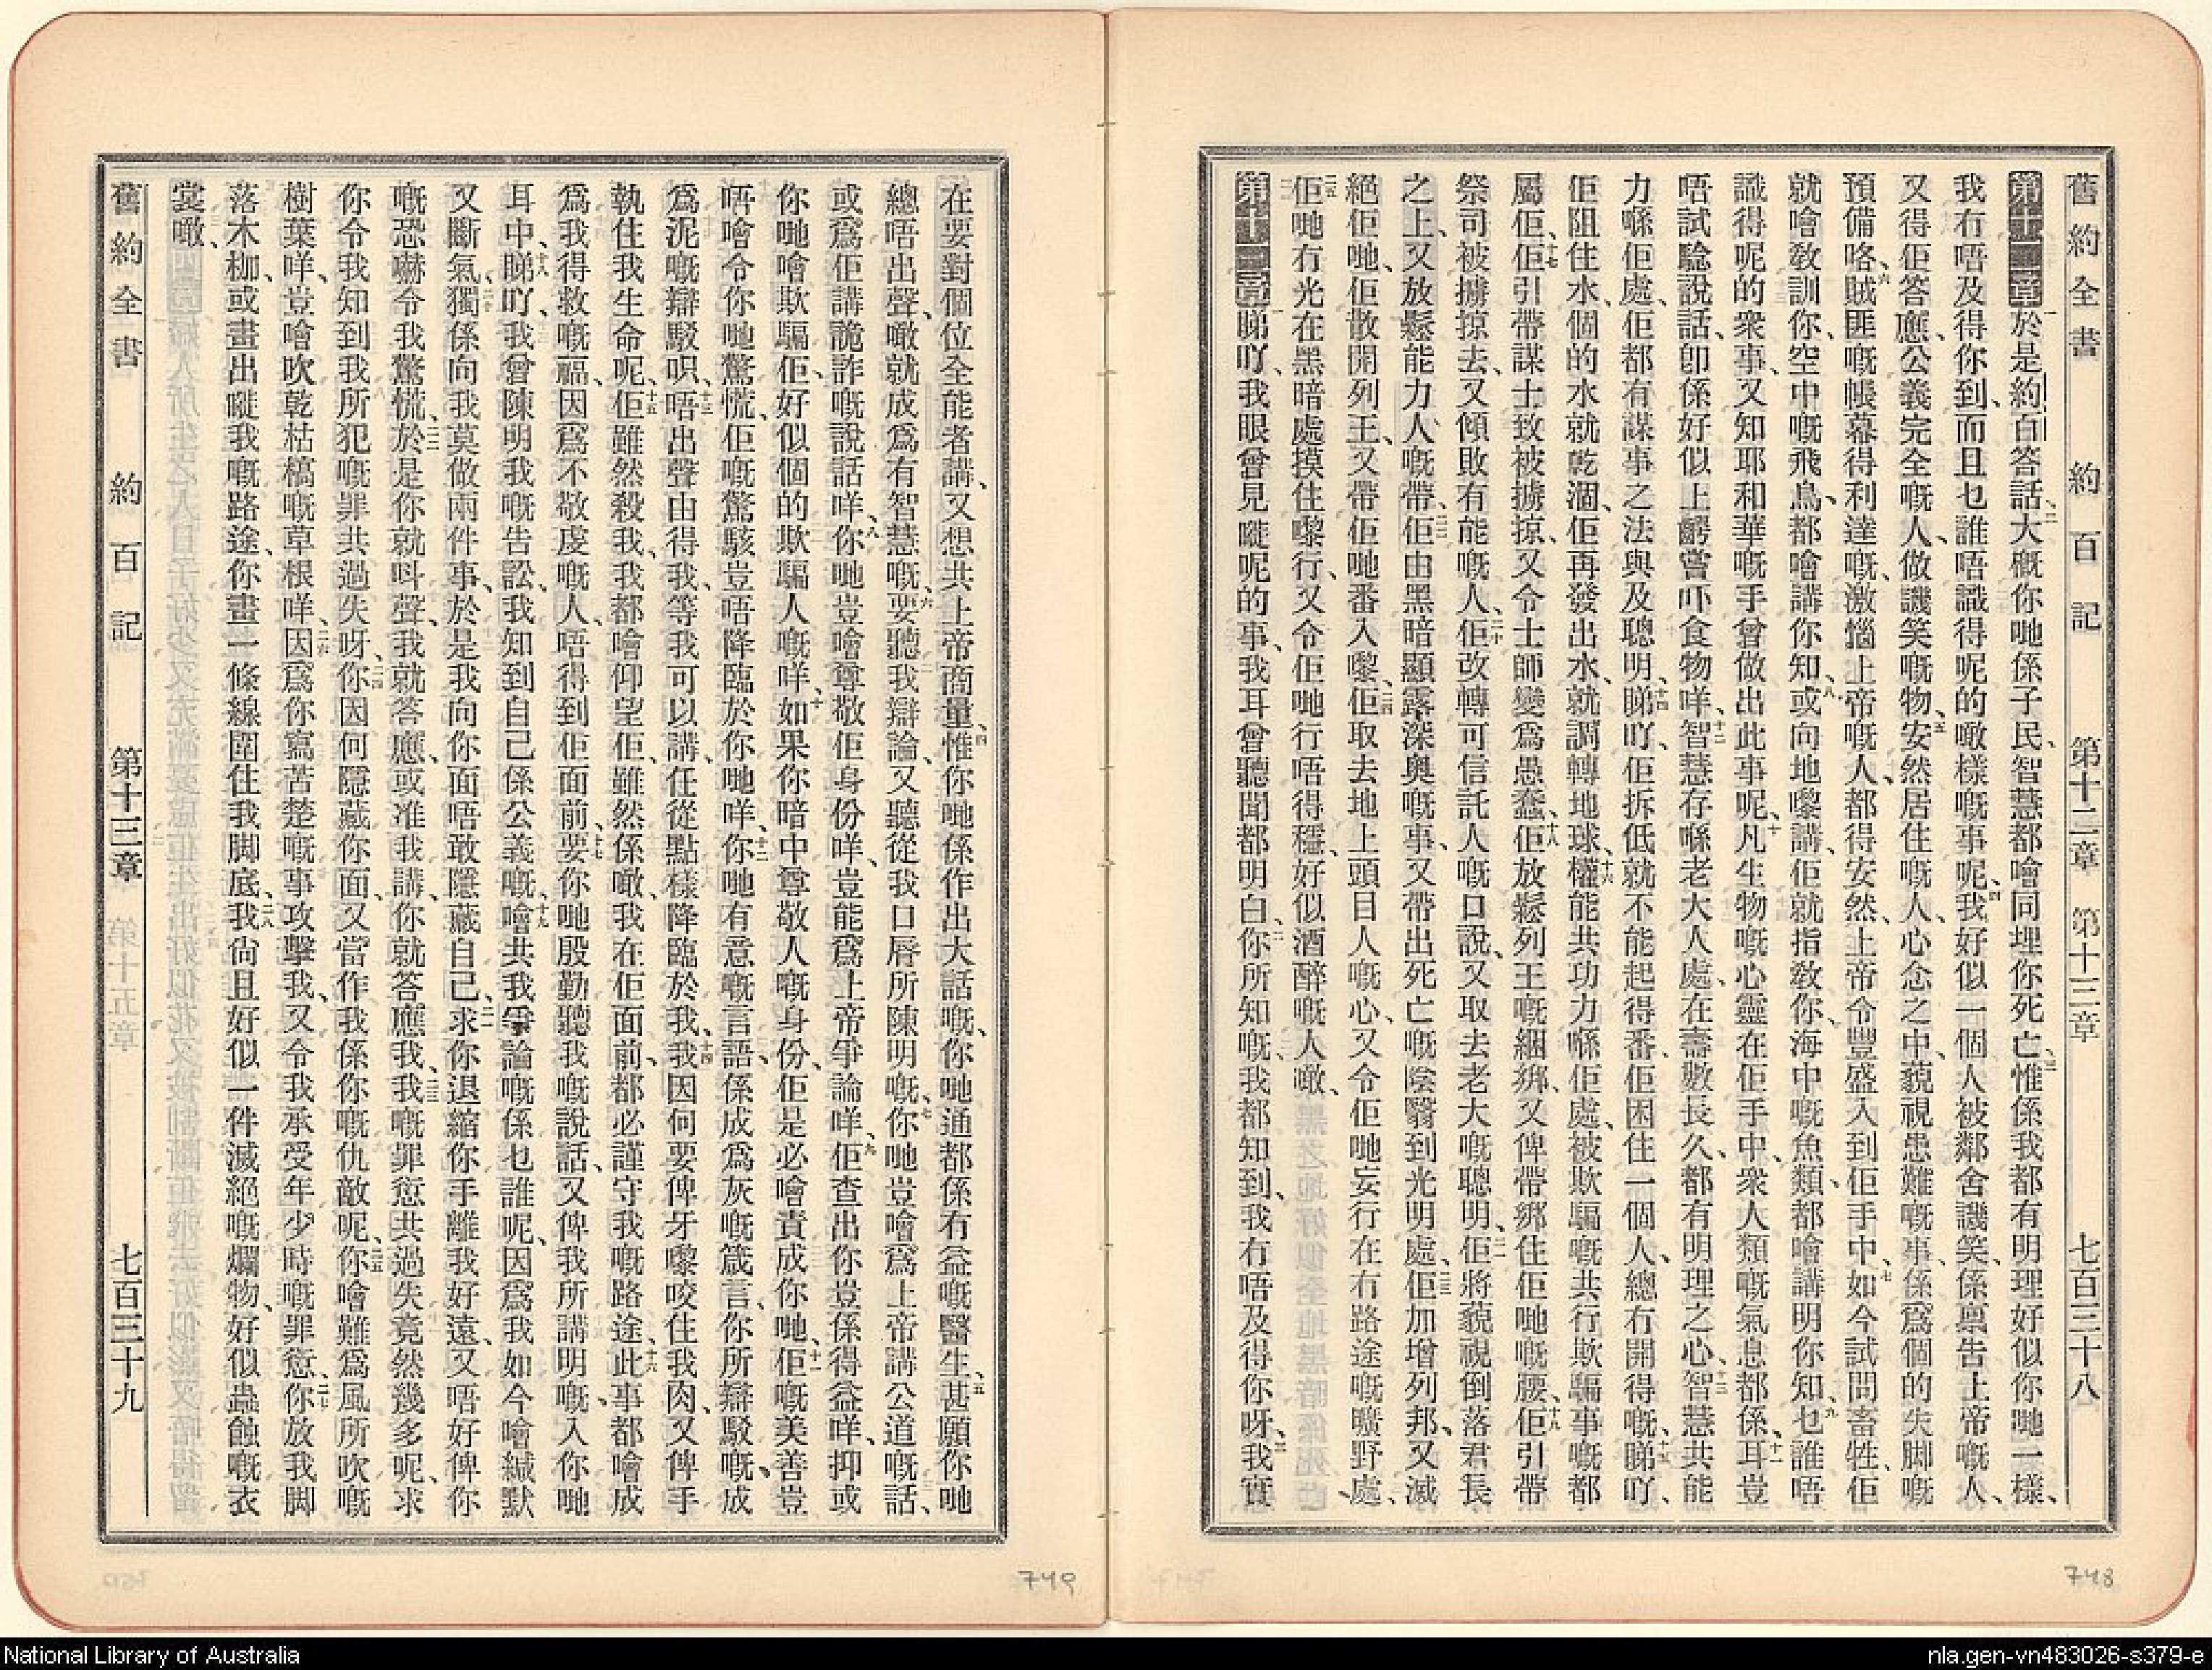 舊約全書 約百記 第十二章 第十三章 七百三十八
第十二章 一 於是約百答話、二 大概你哋係子民、智慧都噲同埋你死亡、三 惟係我都有明理好似你哋一樣、
我冇唔及得你到、而且乜誰唔識得呢的噉樣嘅事呢、四 我好似一個人被鄰舍譏笑、係稟告上帝嘅人、
又得佢答應、公義完全嘅人、做譏笑嘅物、五 安然居住嘅人、心念之中、藐視患難嘅事、係爲個的失脚嘅
預備咯、六 賊匪嘅帳幕得利達嘅、激惱上帝嘅人、都得安然、上帝令豐盛入到佢手中、七 如今試問畜牲、佢
就噲敎訓你、空中嘅飛鳥、都噲講你知、八 或向地嚟講、佢就指敎你、海中嘅魚類、都噲講明你知、九 乜誰唔
識得呢的衆事、又知耶和華嘅手曾做出此事呢、十 凡生物嘅心靈在佢手中、衆人類嘅氣息都係、十一 耳豈
唔試騐說話、卽係好似上齶嘗吓食物咩、十二 智慧存喺老大人處、在壽數長久、都有明理之心、十三 智慧共能
力喺佢處、佢都有謀事之法與及聰明、十四 睇吖、佢拆低就不能起得番、佢困住一個人、總冇開得嘅、十五 睇吖、
佢阻住水、個的水就乾涸、佢再發出水、就調轉地球、十六 權能共功力喺佢處、被欺騙嘅共行欺騙事嘅都
屬佢、十七 佢引帶謀士致被擄掠、又令士師變爲愚蠢、十八 佢放鬆列王嘅綑綁、又俾帶綁住佢哋嘅腰、十九 佢引帶
祭司被擄掠去、又傾敗有能嘅人、二十 佢改轉可信託人嘅口說、又取去老大嘅聰明、二一 佢將藐視倒落君長
之上、又放鬆能力人嘅帶、二二 佢由黑暗顯露深奥嘅事、又帶出死亡嘅陰翳到光明處、二三 佢加增列邦、又滅
絕佢哋、佢散開列王、又帶佢哋番入嚟、二四 佢取去地上頭目人嘅心、又令佢哋妄行在冇路途嘅曠野處、
二五 佢哋冇光在黑暗處摸住嚟行、又令佢哋行唔得穩、好似酒醉嘅人噉、
第十三章 一 睇吖、我眼曾見嘥呢的事、我耳曾聽聞都明白、二 你所知嘅、我都知到、我冇唔及得你呀、三 我實
在要對個位全能者講、又想共上帝商量、四 惟你哋係作出大話嘅、你哋通都係冇益嘅醫生、五 甚願你哋
總唔出聲、噉就成爲有智慧嘅、六 要聽我辯論、又聽從我口唇所陳明嘅、七 你哋豈噲爲上帝講公道嘅話、
或爲佢講詭詐嘅說話咩、八 你哋豈噲尊敬佢身份咩、豈能爲上帝爭論咩、九 佢查出你豈係得益咩、抑或
你哋噲欺騙佢、好似個的欺騙人嘅咩、十 如果你暗中尊敬人嘅身份、佢是必噲責成你哋、十一 佢嘅美善豈
唔噲令你哋驚慌、佢嘅驚駭豈唔降臨於你哋咩、十二 你哋有意嘅言語、係成爲灰嘅箴言、你所辯駁嘅、成
爲泥嘅辯駁呮、十三 唔出聲由得我、等我可以講、任從點樣降臨於我、十四 我因何要俾牙嚟咬住我肉、又俾手
執住我生命呢、十五 佢雖然殺我、我都噲仰望佢、雖然係噉、我在佢面前、都必謹守我嘅路途、十六 此事都噲成
爲我得救嘅福、因爲不敬虔嘅人、唔得到佢面前、十七 要你哋殷勤聽我嘅說話、又俾我所講明嘅、入你哋
耳中、十八 睇吖、我曾陳明我嘅告訟、我知到自己係公義嘅、十九 噲共我爭論嘅係乜誰呢、因爲我如今噲緘默
又斷氣、二十 獨係向我莫做兩件事、於是我向你面唔敢隱藏自己、二一 求你退縮你手離我好遠、又唔好俾你
嘅恐嚇令我驚慌、二二 於是你就呌聲、我就答應、或准我講、你就答應我、二三 我嘅罪愆共過失竟然幾多呢、求
你令我知到我所犯嘅罪共過失呀、二四 你因何隱藏你面、又當作我係你嘅仇敵呢、二五 你噲難爲風所吹嘅
樹葉咩、豈噲吹乾枯槁嘅草根咩、二六 因爲你寫苦楚嘅事攻擊我、又令我承受年少時嘅罪愆、二七 你放我脚
落木枷、或畫出嘥我嘅路途、你畫一條線圍住我脚底、二八 我尙且好似一件滅絕嘅爛物、好似蟲蝕嘅衣
裳噉、
舊約全書 約百記 第十三章 七百三十九
748
749
National Library of Australia
nla.gen-vn483026-s379-e